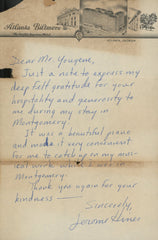 Atlanta Biltmore
Atlanta, Georgia
Dear Mr. Yougene,
Just a note to express my
deep felt gratitude for your
hospitality and generosity to
me during my stay in
Montgomery.
It was a beautiful piano
and made it very convenient
for me to catch up on my mus-
ical work while I was in
Montgomery.
Thank you again for your
kindness —
Sincerely,
Jerome Hines